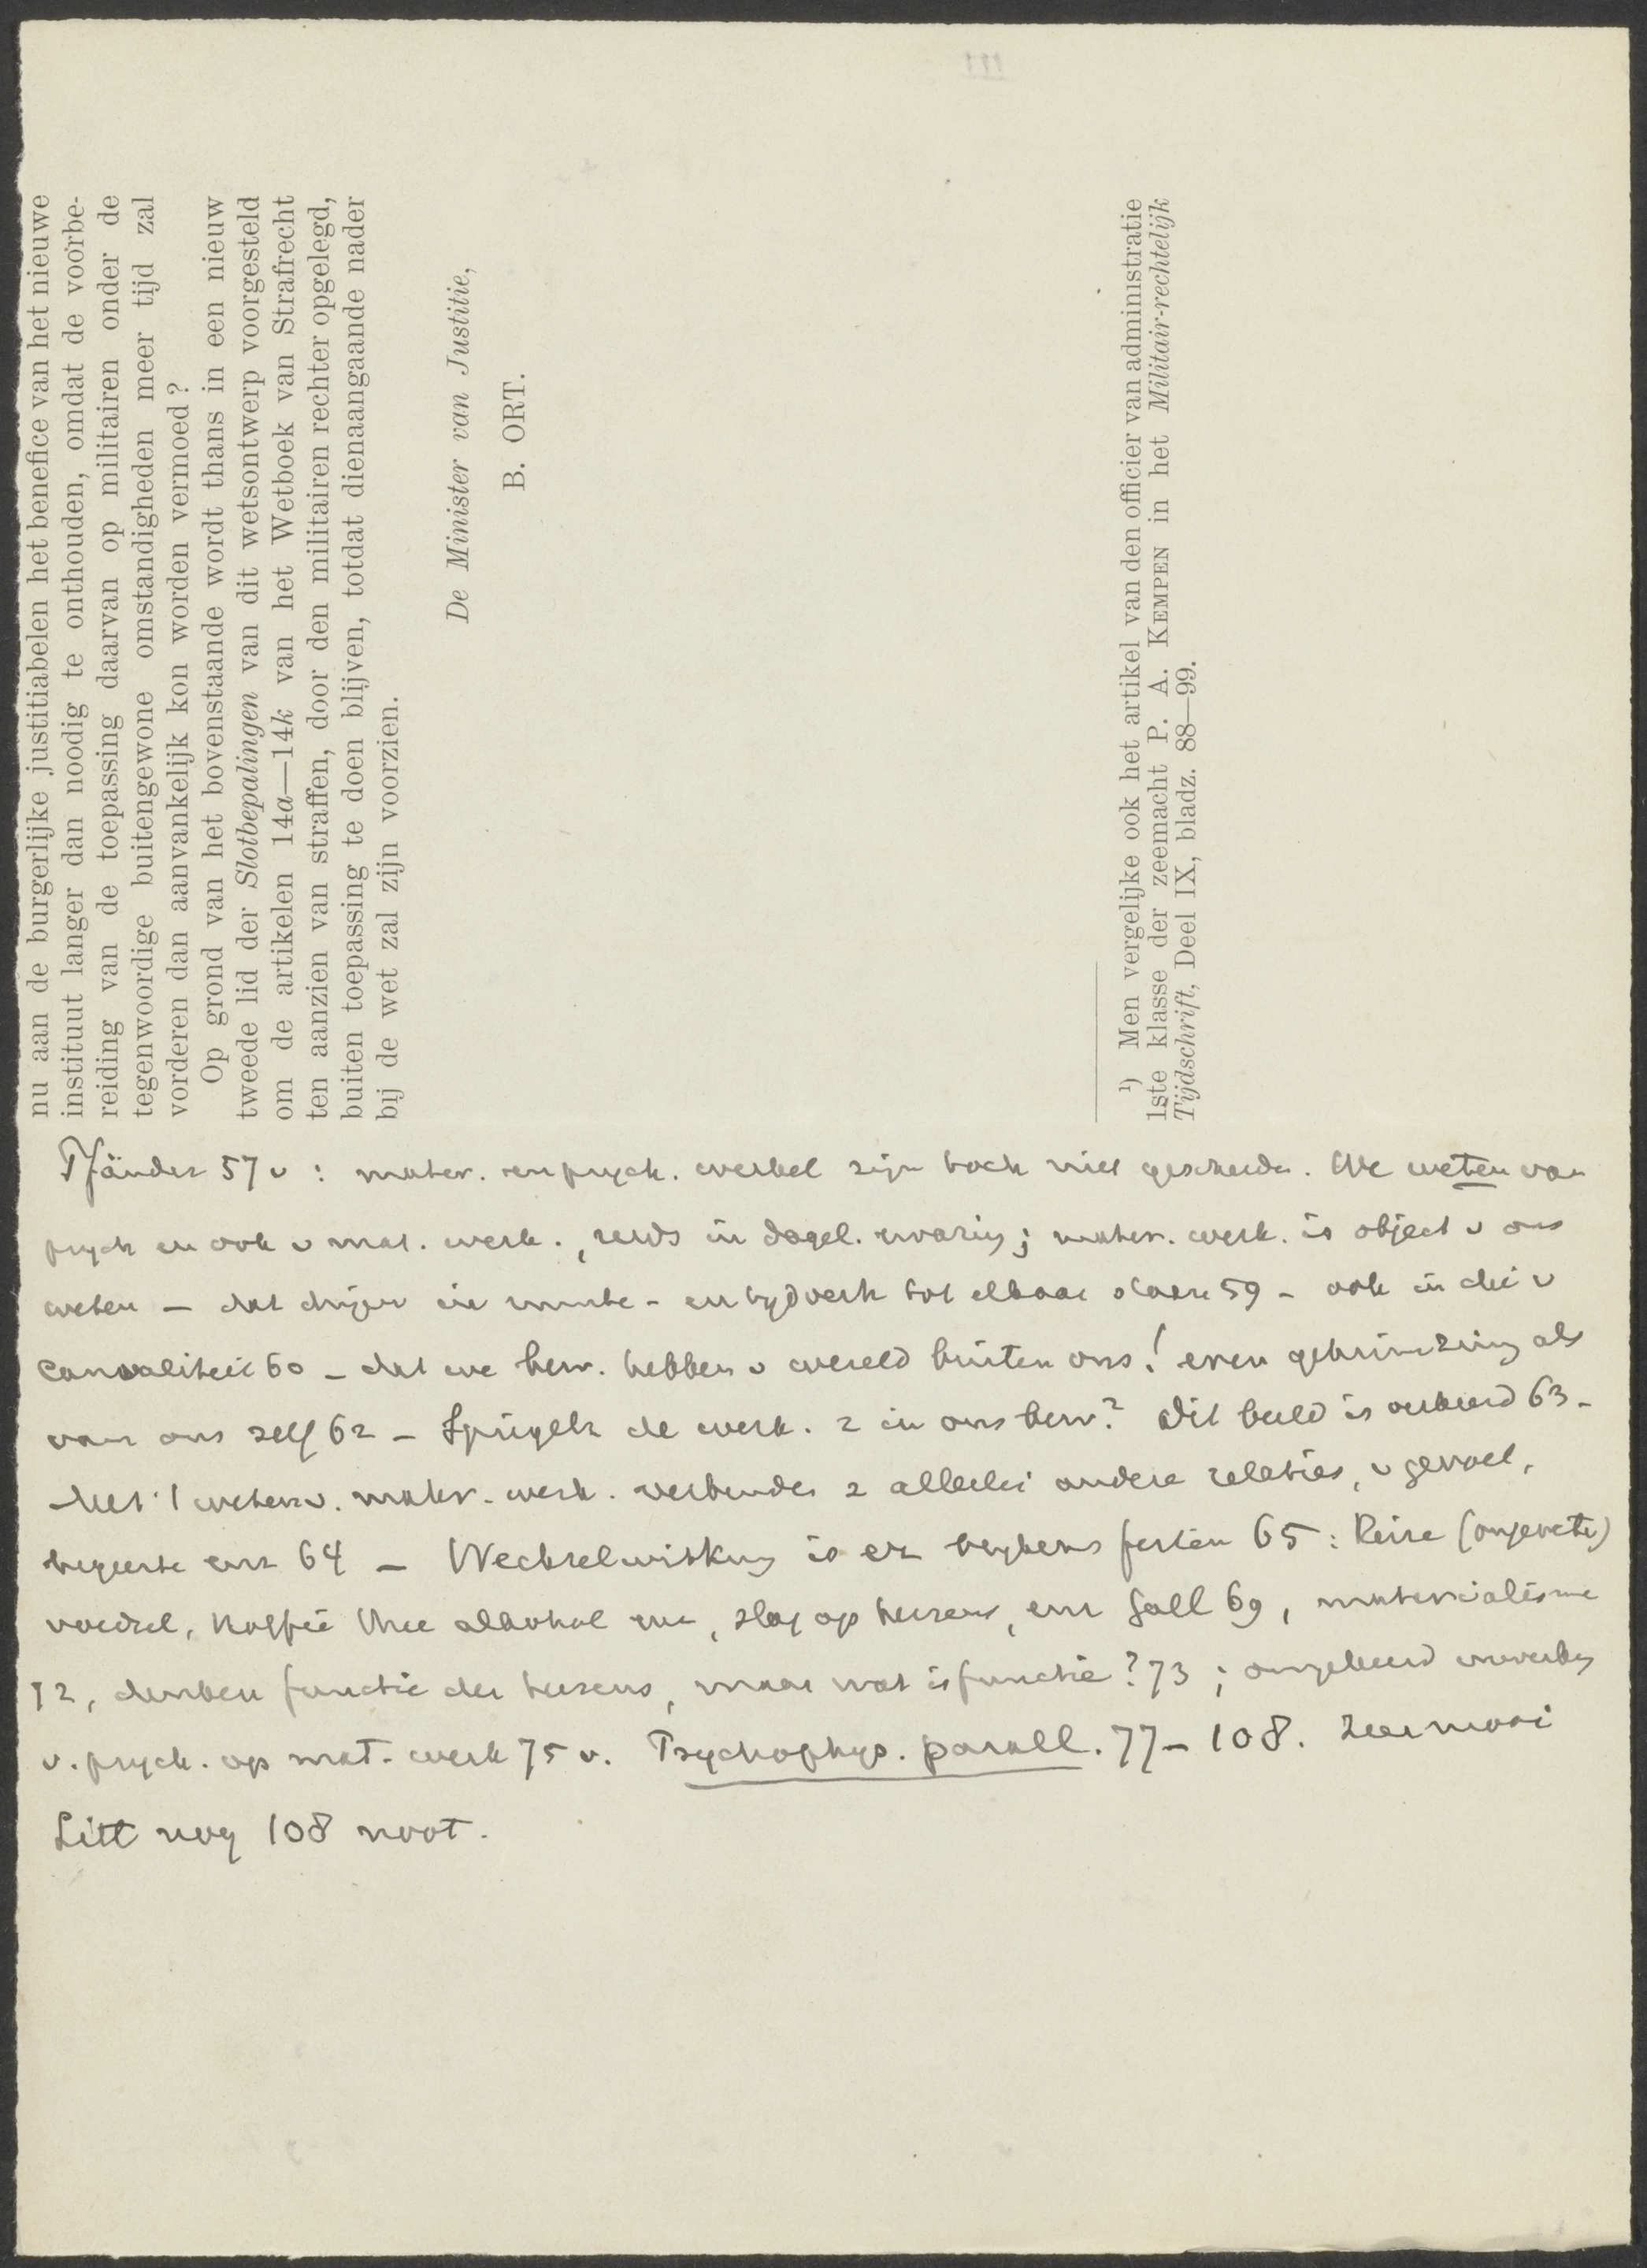 nu aan de burgerlijke justitiabelen het benefice van het nieuwe
instituut langer dan noodig te onthouden, omdat de voorbe-
reiding van de toepassing daarvan op militairen onder de
tegenwoordige buitengewone omstandigheden meer tijd zal
vorderen dan aanvankelijk kon worden vermoed?
Op grond van het bovenstaande wordt thans in een nieuw
tweede lid der Slotbepalingen van dit wetsontwerp voorgesteld
om de artikelen 14a—14k van het Wetboek van Strafrecht
ten aanzien van straffen, door den militairen rechter opgelegd,
buiten toepassing te doen blijven, totdat dienaangaande nader
bij de wet zal zijn voorzien.
De Minister van Justitie,
B. ORT.
¹) Men vergelijke ook het artikel van den officier van administratie
1ste klasse der zeemacht P. A. KEMPEN in het Militair-rechtelijk
Tijdschrift, Deel IX, bladz. 88—99.
Pfänder 57 v : mater. en psych. wereld zijn toch niet gescheiden. We weten van
psych en ook v mat. werk., reeds in dagel. ervaring; mater. werk. is object v ons
weten — dat dingen in ruimte- en tydverh tot elkaar staan 59 — ook in die v
Causaliteit 60 — dat we bew. hebben v wereld buiten ons! even als
van ons zelf 62 — Spiegelt de werk. z in ons bew? Dit beeld is verkeerd 63 —
Met 't weten v. mater. werk. verbinden z allerlei andere relaties, v gevoel,
begeerte enz 64 — Wechselwirkung is er 65 : Reize
voedsel, Koffie thee alkohol enz, slag op hersens, enz Gall 69, materialisme
72, denken functie der hersens, maar wat is functie? 73 ; omgekeerd inwerking
v. psych. op mat. werk 75 v. Psychophys. parall. 77 — 108. Zeer mooi
Litt nog 108 noot.